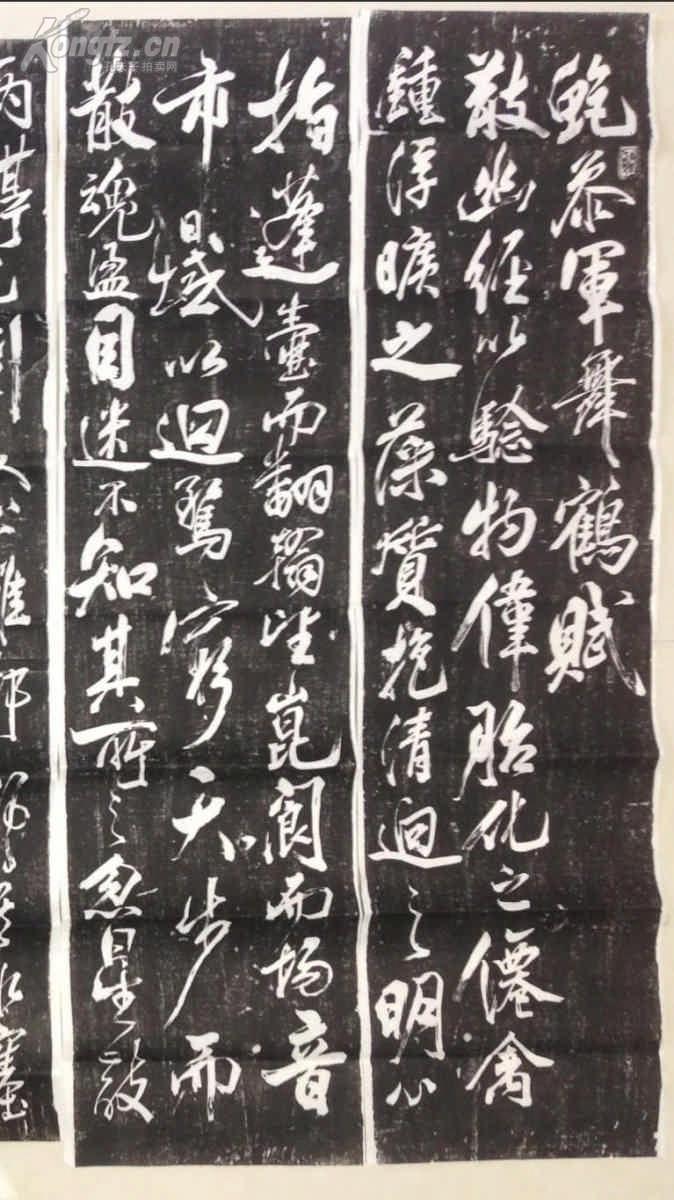 Kongfz.cn
孔夫子拍卖网
鮑參軍舞鶴賦
散幽經以驗物偉胎化之僊禽
鍾浮曠之藻質抱清迥之明心
指蓬壺而翻翰望崑閬而揚音
帀日域以迴騖窮天步而
散魂盪目迷不知其所之忽星散